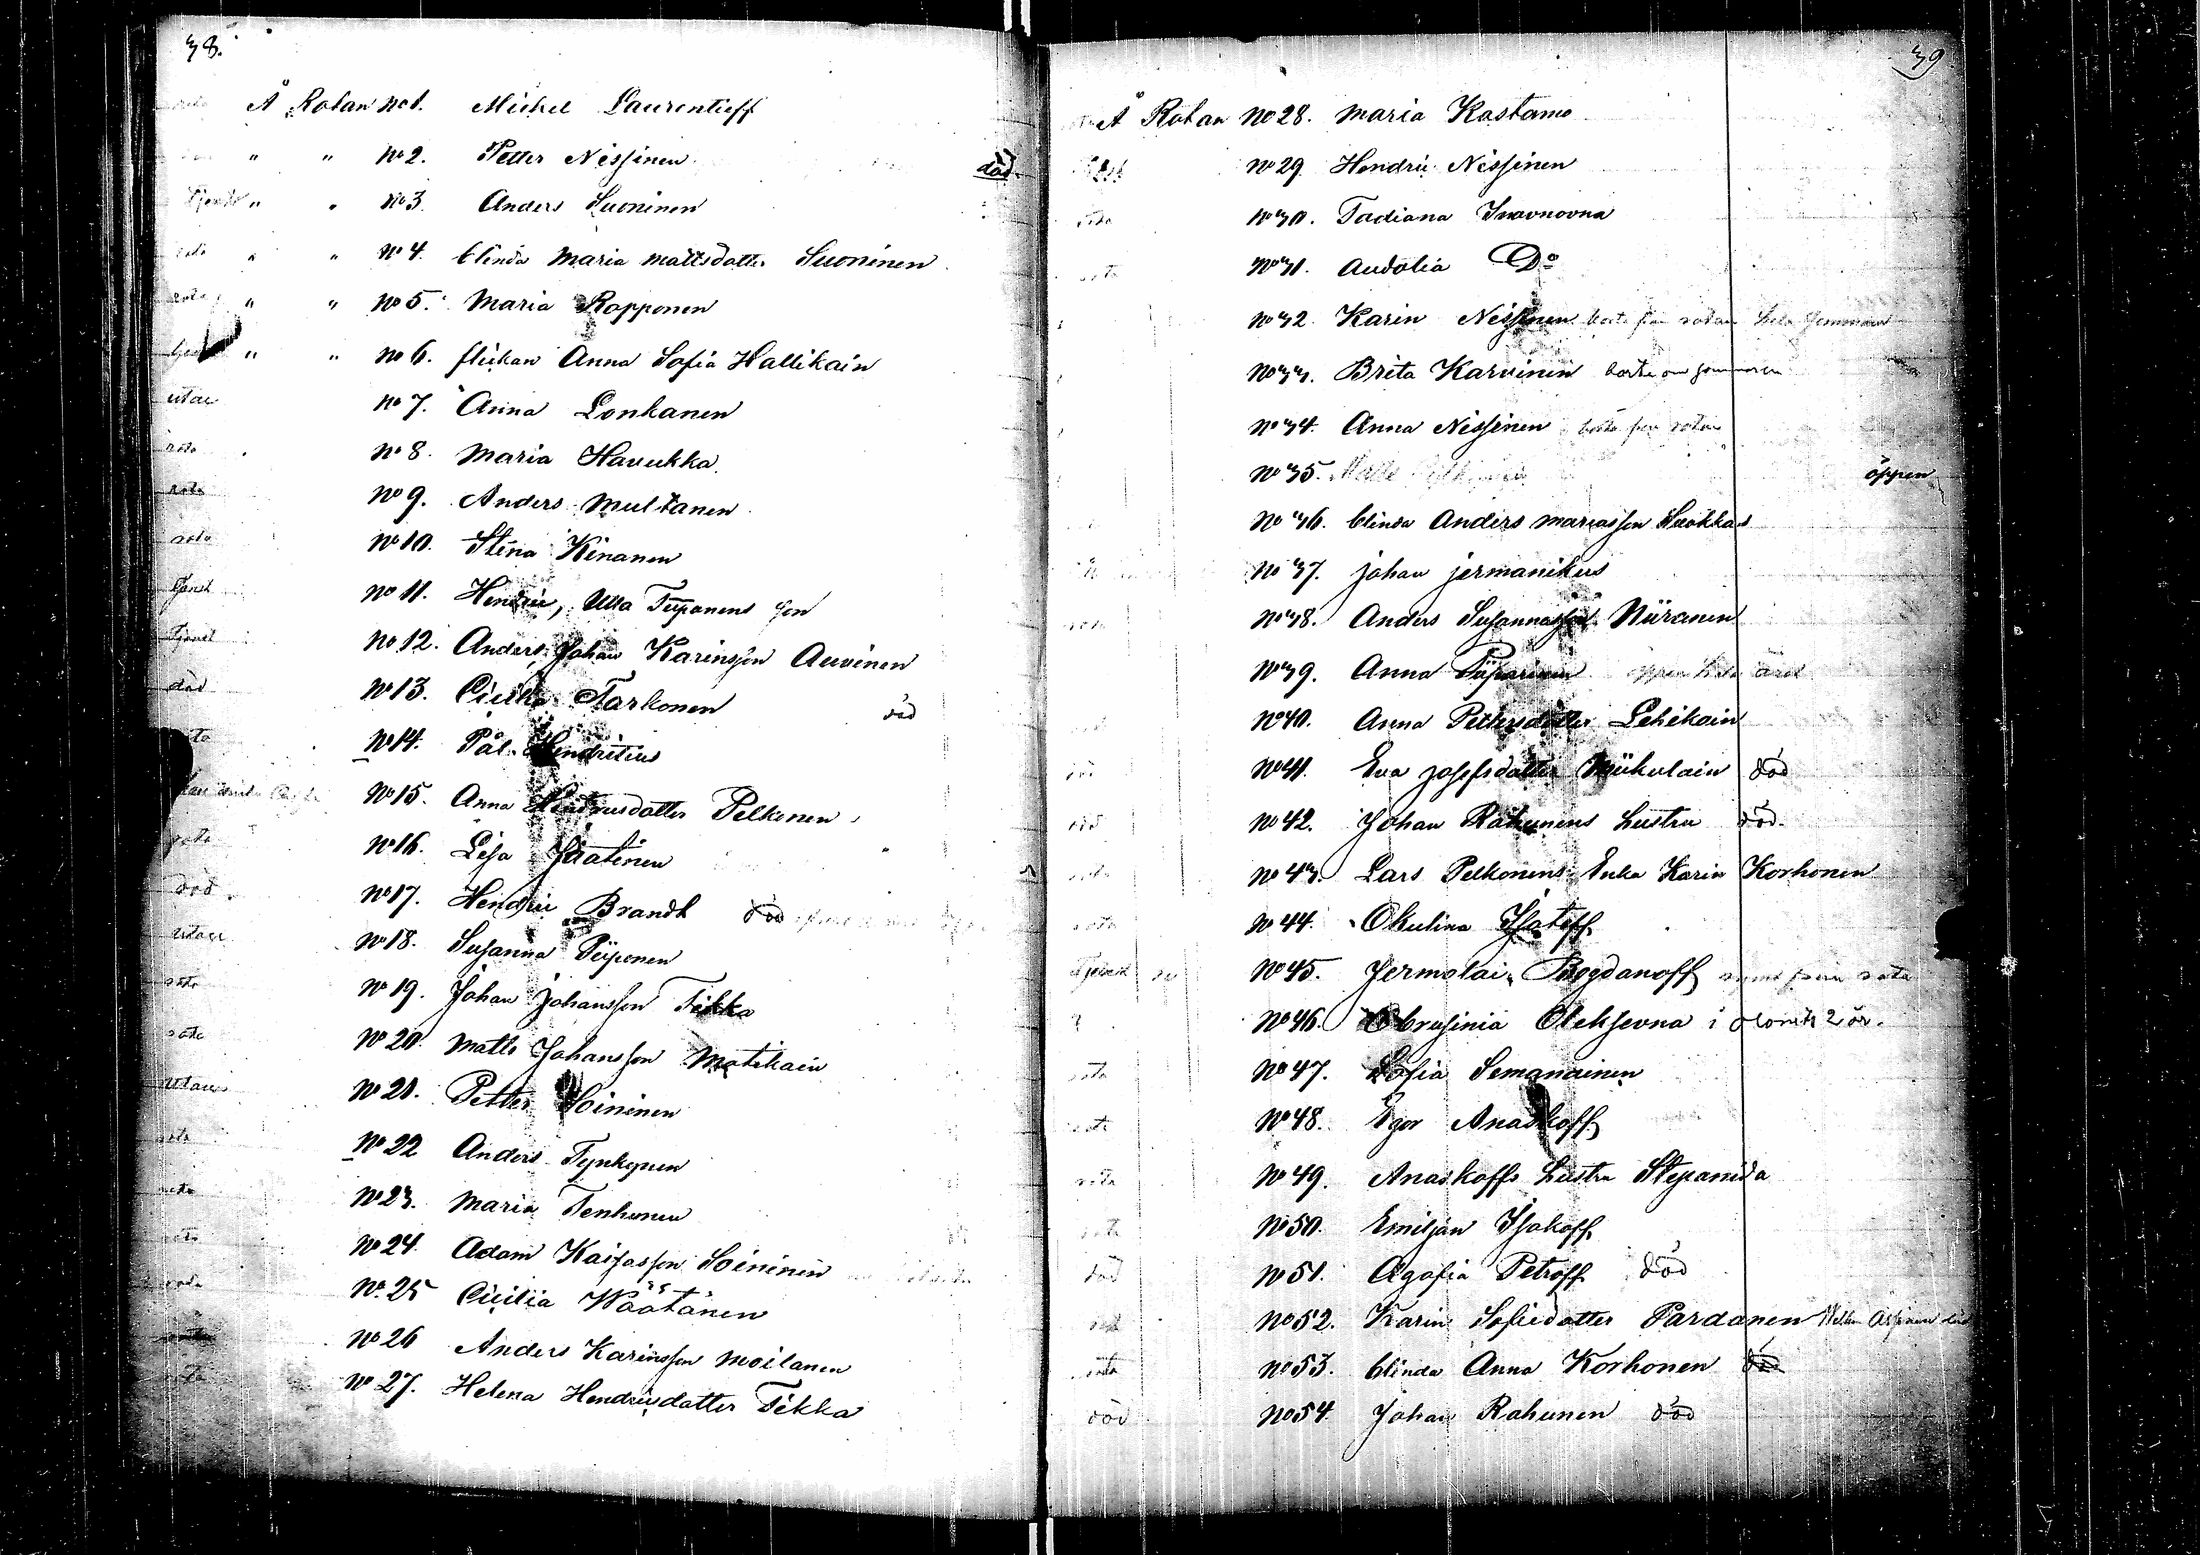 38.
Å Rotan No 1. Michel Laurentieff
" " No 2. Petter Nissinen död.
Tjenst " " No 3. Anders Suoninen
rota " " No 4. blinda Maria Mattsdotter Suoninen
rota " " No 5. Maria Ropponen
" " No 6. flickan Anna Sofia Hallikain
utac No 7. Anna Lonkanen
rota No 8. Maria Havukka
rota No 9. Anders Multanen
rota No 10. Stina Kinanen
Tjenst No 11. Hendric, Ulla Tiipanens son
Tjenst No 12. Anders, Johan Karinsson Auvinen
död No 13. Cicilia Tarkonen död
No 14. Pål Hendritius
No 15. Anna Hendricsdotter Pelkonen
rota No 16. Lisa Jäatinen
död No 17. Hendric Brandt död
utac No 18. Susanna Piiponen
rota No 19. Johan Johansson Tikka
rota No 20. Matts Johansson Matikain
utac No 21. Petter Soininen
rota No 22 Anders Tynkynen
rota No 23. Maria Tenhunen
rota No 24. Adam Kaisasson Soininen
rota No. 25 Cicilia Wäätänen
No 26 Anders Karinsson Moilanen
rota No 27. Helena Hendricsdotter Tikka
39
Å Rotan No 28. Maria Kastamo
No 29 Hendric Nissinen
rota No 30. Tadiana Ivavnovna
rota No 31. Audotia Do
No 32. Karin Nissinen borta från rotan hela sommaren
No 33. Brita Karvinin borta om sommaren
No 34. Anna Nissinen borta från rotan
No 35. Matts öppen
No 36. blinda Anders Mariasson Suokkas
No 37. Johan Jermanikus
rota No 38. Anders Susannasson Niiranen
No 39. Anna Piiparinen öppen hela året
No 40. Anna Pettersdotter Lehikain
död No 41. Eva Josefsdotter Miikulain död
död No 42. Johan Rahunens hustru död.
rota No 43. Lars Pelkonens Enka Karin Korhonen
rota No 44. Okulina Isateff
Tjenst No 45. Jermolai Bogdanoff rymt från rota
No 46. Obrasinia Oleksevna i 2 år.
rota No 47. Sofia Semanainen
rota No 48. Egor Anaskoff
rota No 49. Anaskoffs hustru Stepanida
rota No 50. Emiljan Isakoff
död No 51. Agafia Petroff död
rota No 52. Karin Sofiedotter Pardanen
rota No 53. blinda Anna Korhonen död
död No 54. Johan Rahunen död